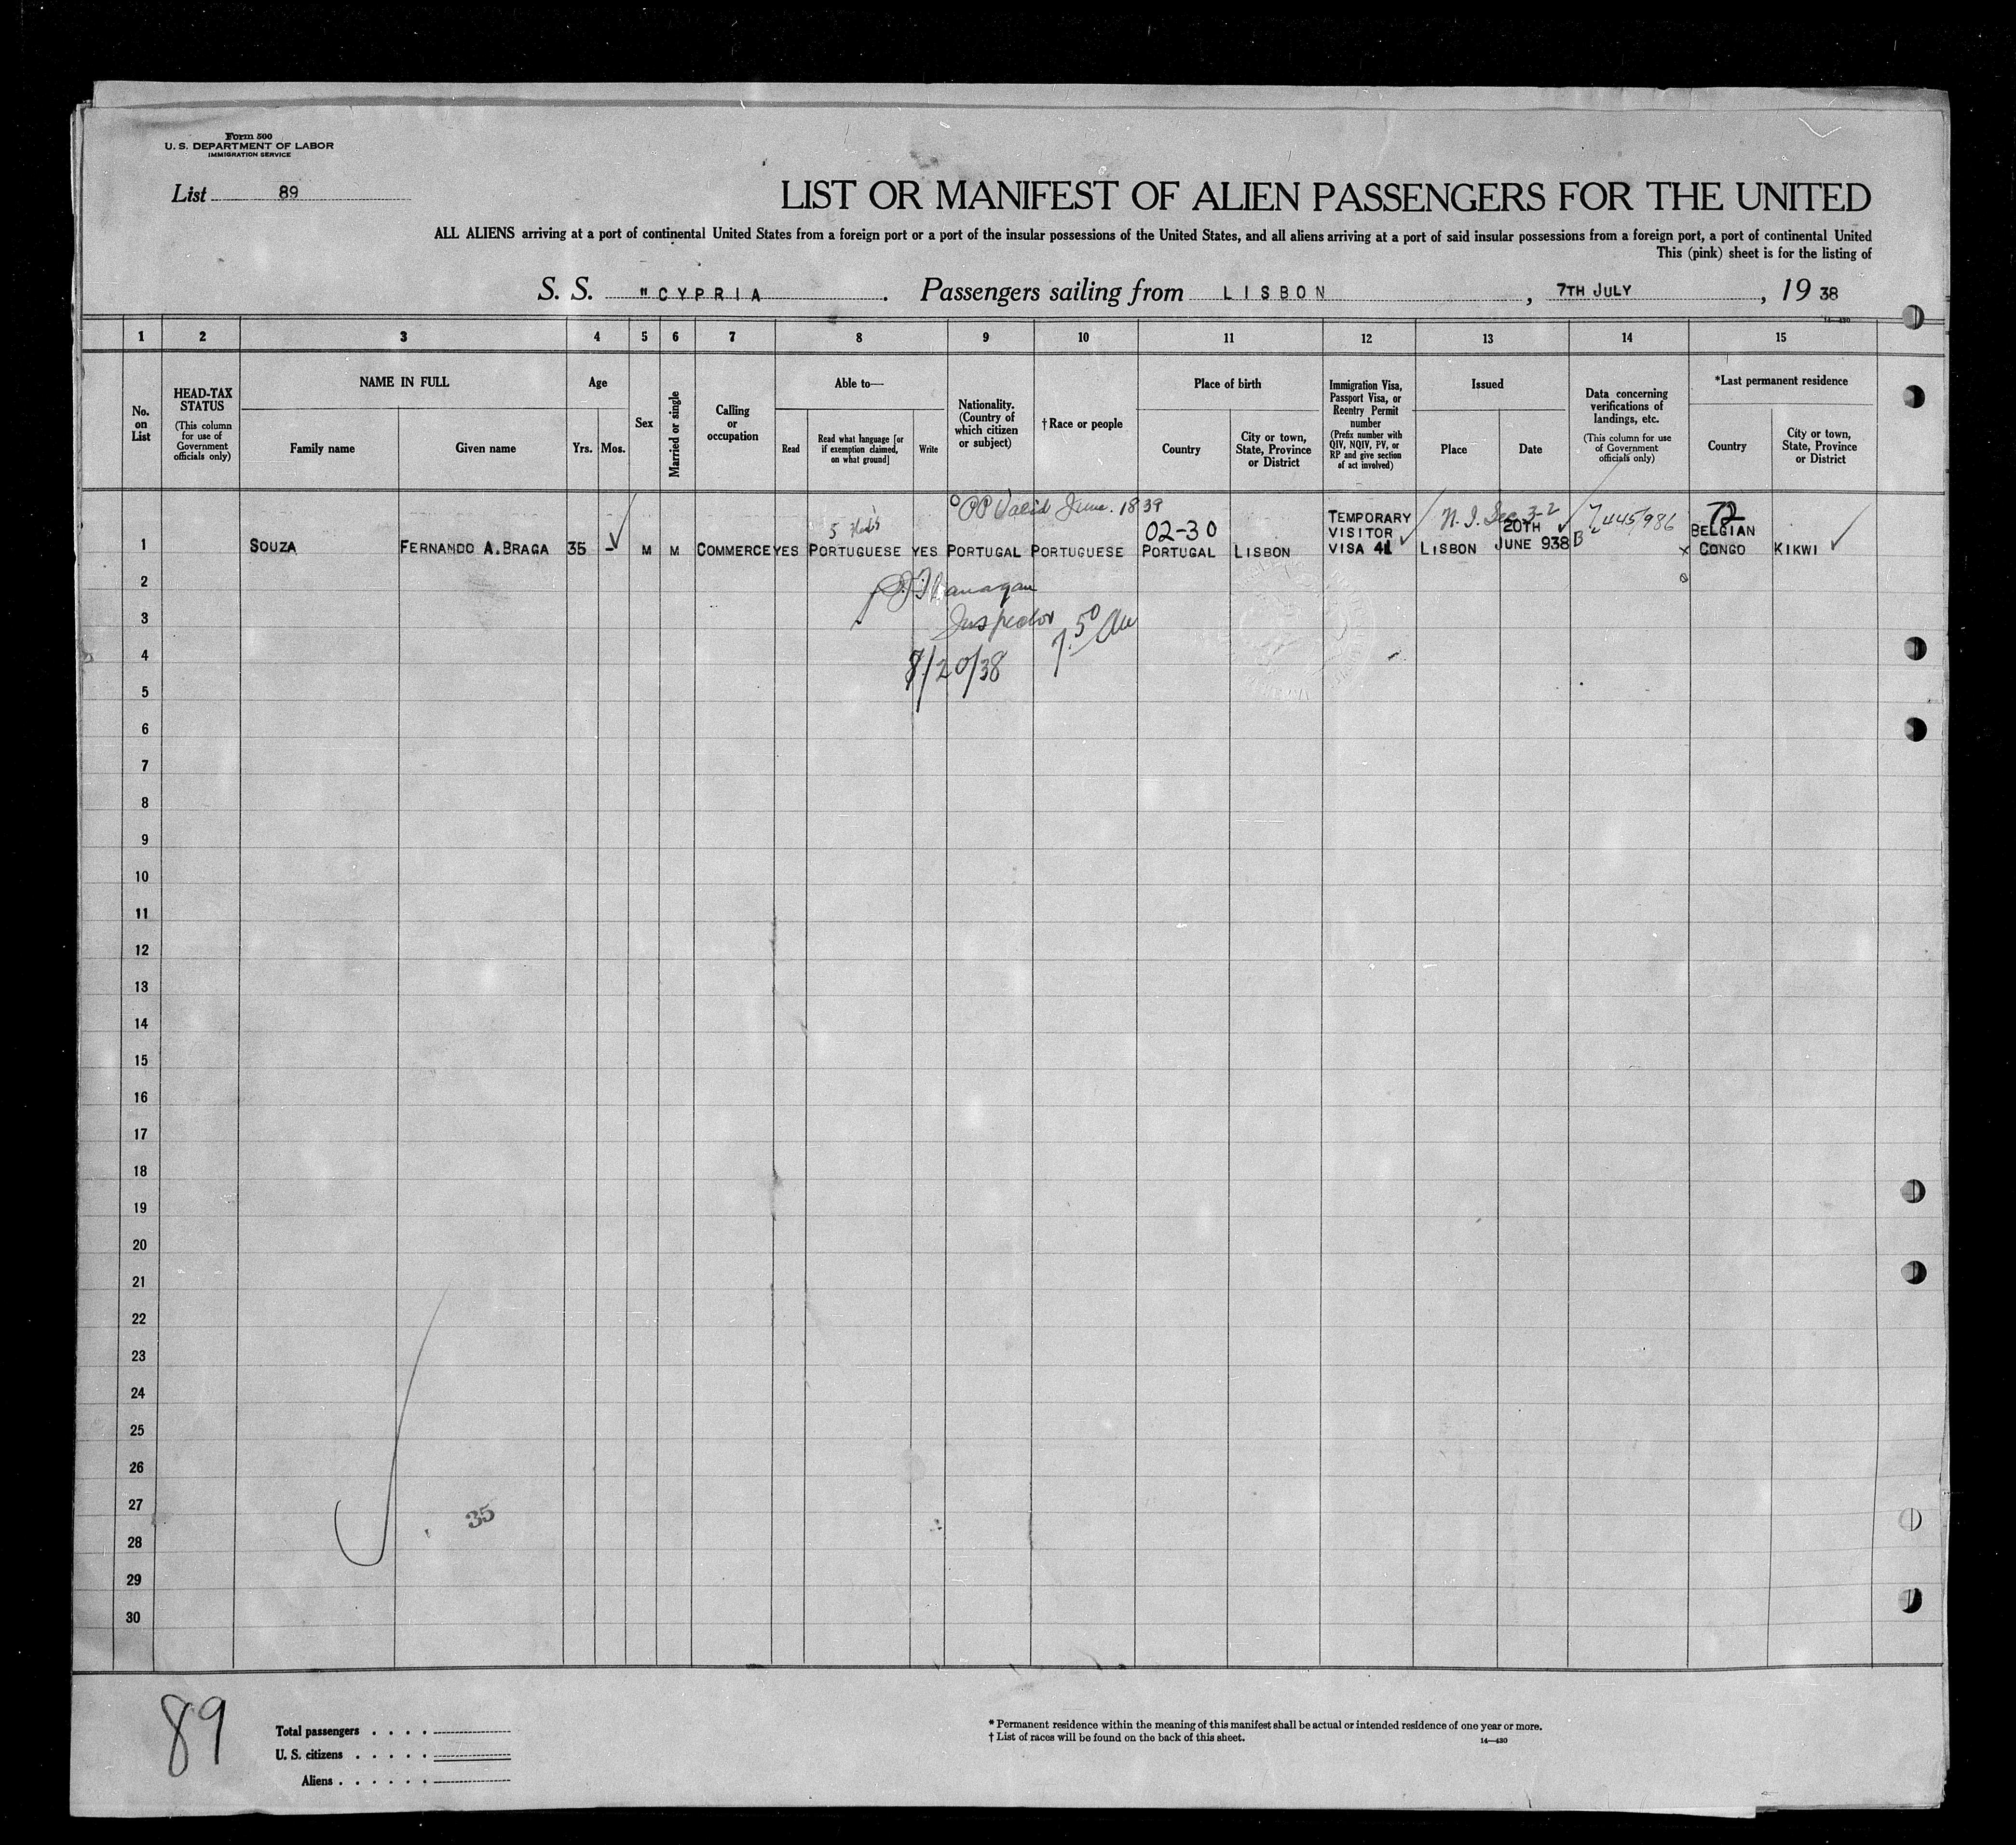 Form 500
U. S. DEPARTMENT OF LABOR
IMMIGRATION SERVICE
List 89
LIST OR MANIFEST OF ALIEN PASSENGERS FOR THE UNITED
ALL ALIENS arriving at a port of continental United States from a foreign port or a port of the insular possessions of the United States, and all aliens arriving at a port of said insular possessions from a foreign port, a port of continental United
This (pink) sheet is for the listing of
S. S. "CYPRIA . Passengers sailing from LISBON , 7TH JULY , 19 38
14—430
1 2 3 4 5 6 7 8 9 10 11 12 13 14 15
No. on List
HEAD-TAX STATUS
(This column for use of Government officials only)
NAME IN FULL
Family name
Given name
Age
Yrs.
Mos.
Sex
Married or single
Calling or occupation
Able to—
Read
Read what language [or if exemption claimed, on what ground]
Write
Nationality. (Country of which citizen or subject)
†Race or people
Place of birth
Country
City or town, State, Province or District
Immigration Visa, Passport Visa, or Reentry Permit number
(Prefix number with QIV, NQIV, PV, or RP and give section of act involved)
Issued
Place
Date
Data concerning verifications of landings, etc.
(This column for use of Government officials only)
*Last permanent residence
Country
City or town, State, Province or District
PP Valid June. 18 39
02-30
N. I. Sec. 3-2
445/986
72
1 SOUZA FERNANDO A. BRAGA 35 - M M COMMERCE YES PORTUGUESE YES PORTUGAL PORTUGUESE PORTUGAL LISBON TEMPORARY VISITOR VISA 41 LISBON 20TH JUNE 938 B BELGIAN CONGO KIKWI
2
Inspector
3
4
8/20/38
5
6
7
8
9
10
11
12
13
14
15
16
17
18
19
20
21
22
23
24
25
26
27
35
28
29
30
89
Total passengers . . . .
U. S. citizens . . . . .
Aliens . . . . . .
* Permanent residence within the meaning of this manifest shall be actual or intended residence of one year or more.
† List of races will be found on the back of this sheet.
14—430